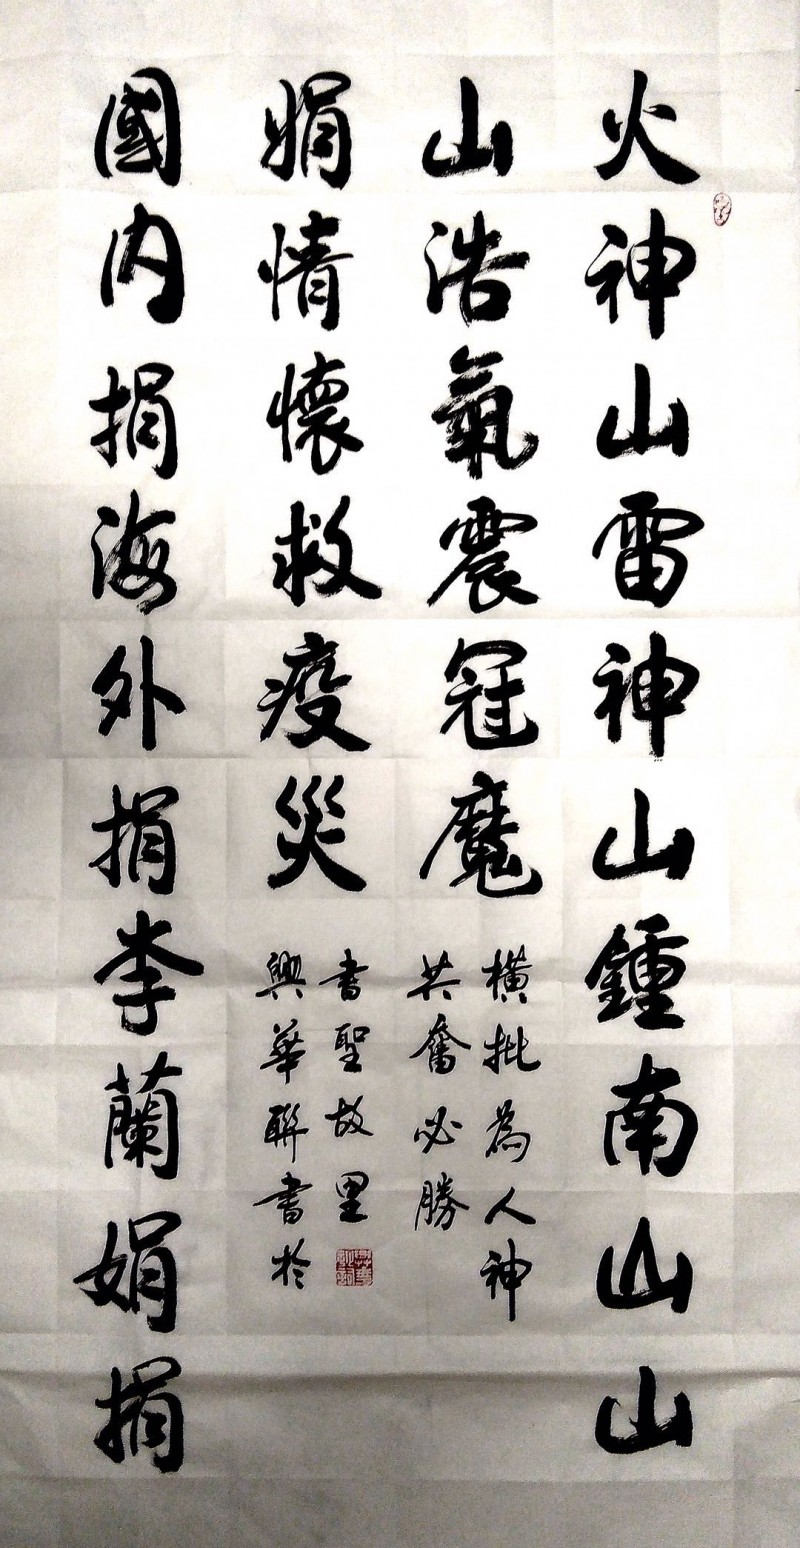 火神山雷神山鍾南山山
山浩氣震冠魔
國内捐海外捐李蘭娟捐
娟情懷救疫災
橫批為人神
共奮必勝
興華聯書於
書聖故里